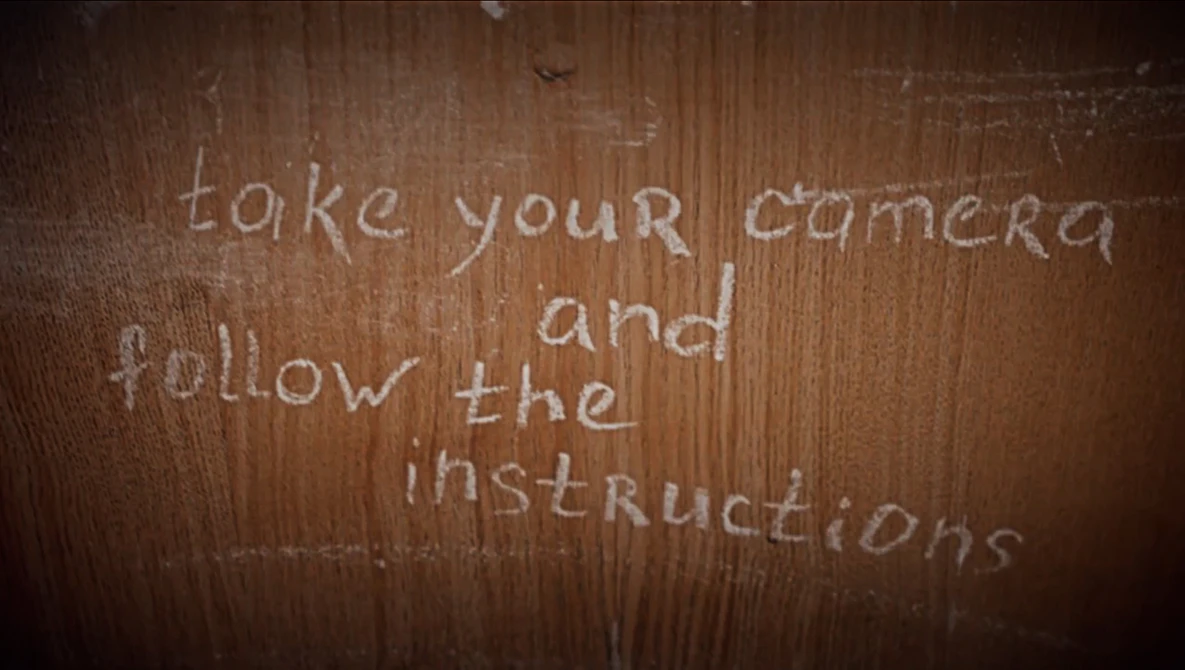 take youR cameRa
and
follow the
instRuctions